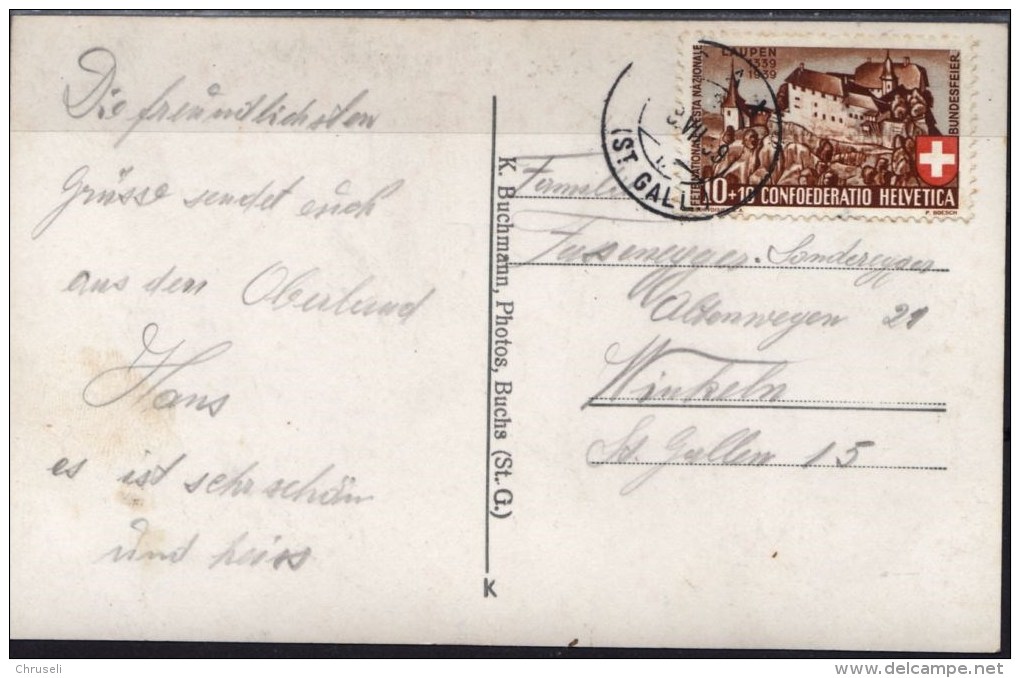 Die freundlichsten
Grüsse sendet euch
aus dem Oberland
Hans
es ist sehr schön
und heiss
K. Buchmann, Photos, Buchs (St. G.)
K
LAUPEN
1339
1939
FETE NATIONALE FESTA NAZIONALE
BUNDESFEIER
10+10 CONFOEDERATIO HELVETICA
(ST. GALL
VII
Familie
Fassenegger-Sonderegger
Altenwegen 21
Winkeln
St. Gallen 15
Chruseli
www.delcampe.net